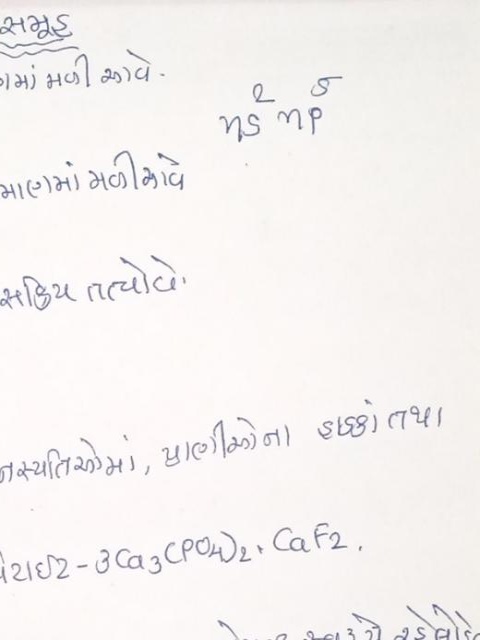 સમૂહ
ણમાં મળી આવે.
ns² np⁵
માણમાં મળી આવે
સક્રિય તત્વો છે.
નસ્પતિઓમાં, પ્રાણીઓના હાડકાં તથા
પેટાઈટ - 3Ca3(PO4)2. CaF2.